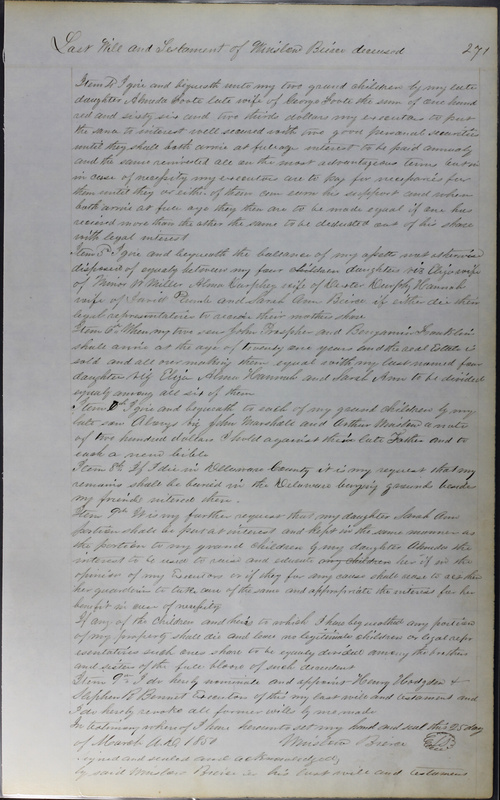 Last Will and Testament of Winslow Beirce deceased 271
Item I give and bequeath unto my two grand children by my late
daughter Almeda Foote late wife of George Foote the sum of one hund
red and sixty six and two thirds dollars my executors to put
the same to interest well secured with two good personal securities
until they shall both arrive at full age interest to be paid annually
and the same reinvested all on the most advantageous terms
in case of necessity my executors are to pay for necessaries for
them until they or either of them can earn his support and when
both arrive at full age they then are to be made equal if one has
received more than the other the same to be deducted out of his share
with legal interest
Item 5th I give and bequeath the ballance of my effects not otherwise
disposed of equaly between my four children daughters viz Eliza wife
of Minor W Miller Alma wife of Hannah
wife of David and Sarah Ann Beirce if either die their
legal representatives to receive their mothers share
Item 6th When my two sons John and Benjamin Franklin
shall arrive at the age of twenty one years and the real Estate is
sold and all over making them equal with my last named four
daughters viz Eliza Alma Hannah and Sarah Ann to be divided
equaly among all six of them
Item I give and bequeath to each of my grand children by my
late son viz John Marshall and Arthur a note
of two hundred dollars I hold against their late Father and to
each a new bible
Item 8th If I die in Dellaware County it is my request that my
remains shall be buried in the Delaware burying grounds beside
my friends interred there
Item 9th It is my further request that my daughter Sarah Ann
portion shall be put at interest and kept in the same manner as
the portion to my grand children by my daughter Almeda the
interest to be used to raise and educate any children her if in the
opinion of my Executors or if they for any cause shall cease to act
her guardian to take care of the same and appropriate the interest for her
benefit in case of necessity
If any of the Children and heirs to which I have bequeathed any portion
of my property shall die and leave no legitimate children or legal repr
esentatives such ones share to be equaly divided among the brothers
and sisters of the full blood of such decedent
Item 9th I do hereby nominate and appoint Henry Hodgden &
Stephen B Bennet Executors of this my last will and testament and
I do hereby revoke all former wills by me made
In testimony whereof I have hereunto set my hand and seal this 25 day
of March A.D. 1850 Winslow Beirce
signed and sealed and acknowledged
by said Winslow Beirce as his last will and testament